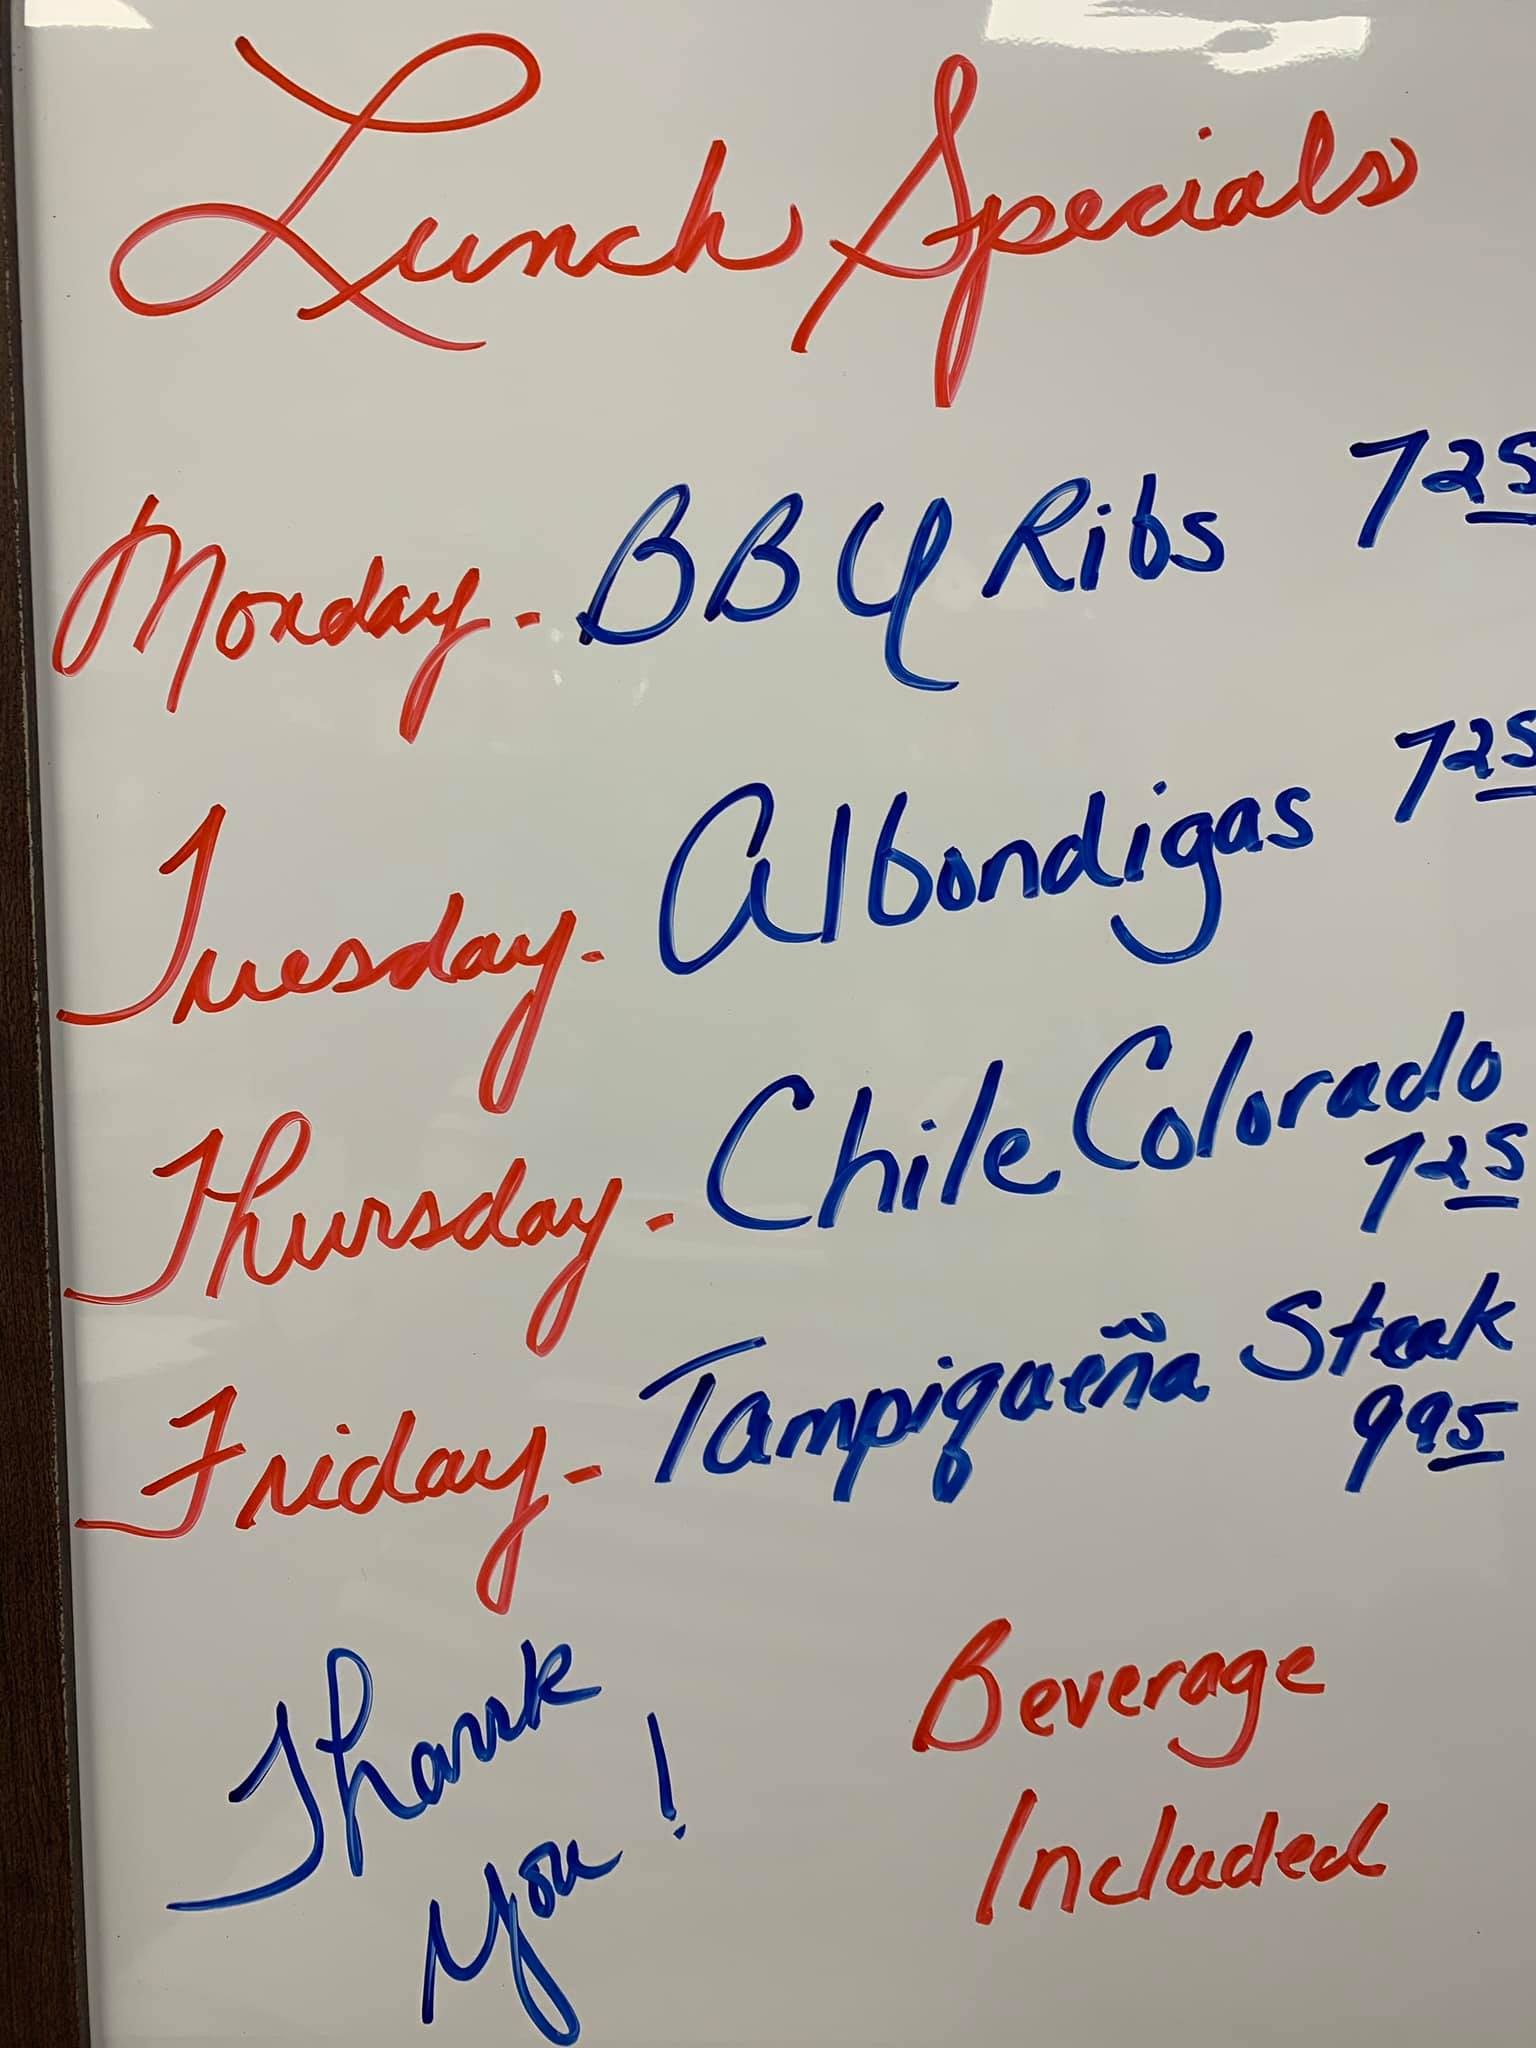 Lunch Specials
Monday - BBQ Ribs 7 25
Tuesday - Albondigas 7 25
Thursday - Chile Colorado
7 25
Friday - Tampiqueña Steak
9 95
Thank
You!
Beverage
Included